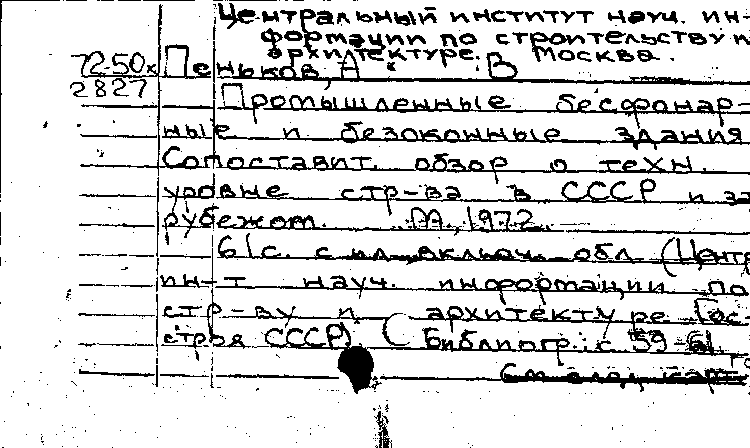 Центральный институт науч. ин-
формации по строительству и
архитектуре. Москва.
7250к Пеньков, А. В
2827
Промышленные бесфонар-
ные и безоконные здания
Сопоставит. обзор о техн.
уровне стр-ва в СССР и за
рубежом. М., 1972
61с. с ил., включ. обл (Центр
ин-т науч. информации по
стр-ву и архитектуре Гос-
строя СССР) (Библиогр.: с 59-61
См след карт